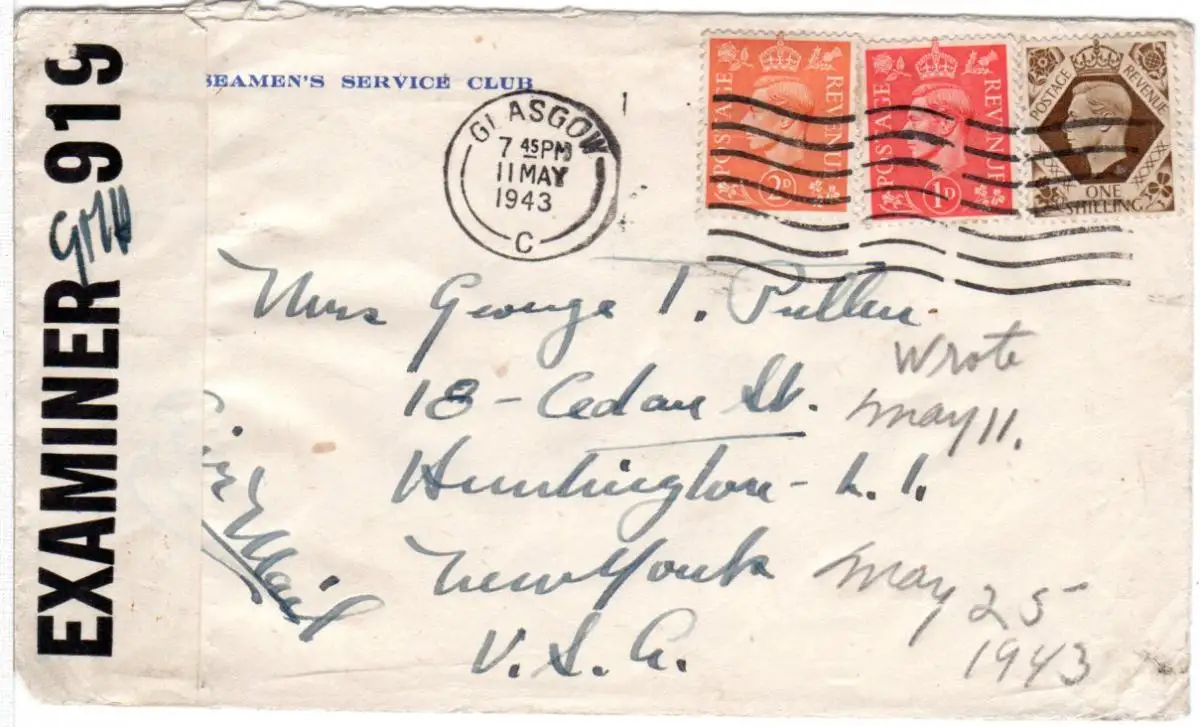 EXAMINER 919
SEAMEN'S SERVICE CLUB
GLASGOW
7 45PM
11 MAY
1943
C
POSTAGE REVENUE
2D
POSTAGE REVENUE
1D
POSTAGE REVENUE
ONE
SHILLING
Mrs George T. Pullen
18 - Cedar St.
Huntington - L. I.
New York
U. S. A.
Air Mail
Wrote
May 11.
May 25
1943